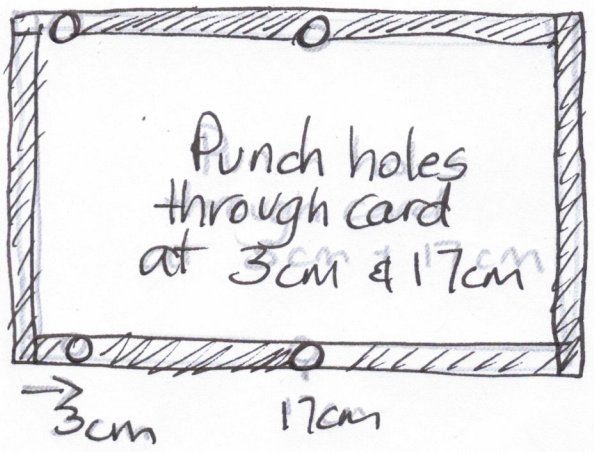 Punch holes
through card
at 3cm & 17cm
3cm
17cm